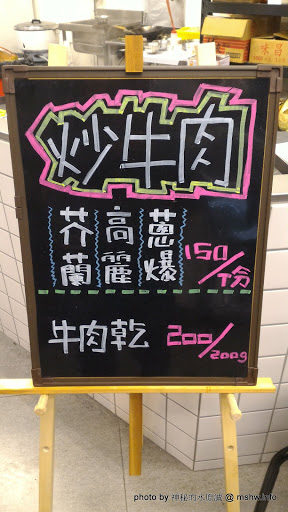 炒牛肉
芥蘭
高麗
蔥爆
150/份
牛肉乾 200/200g
photo by 神秘的水巴滅 @ mshw.info